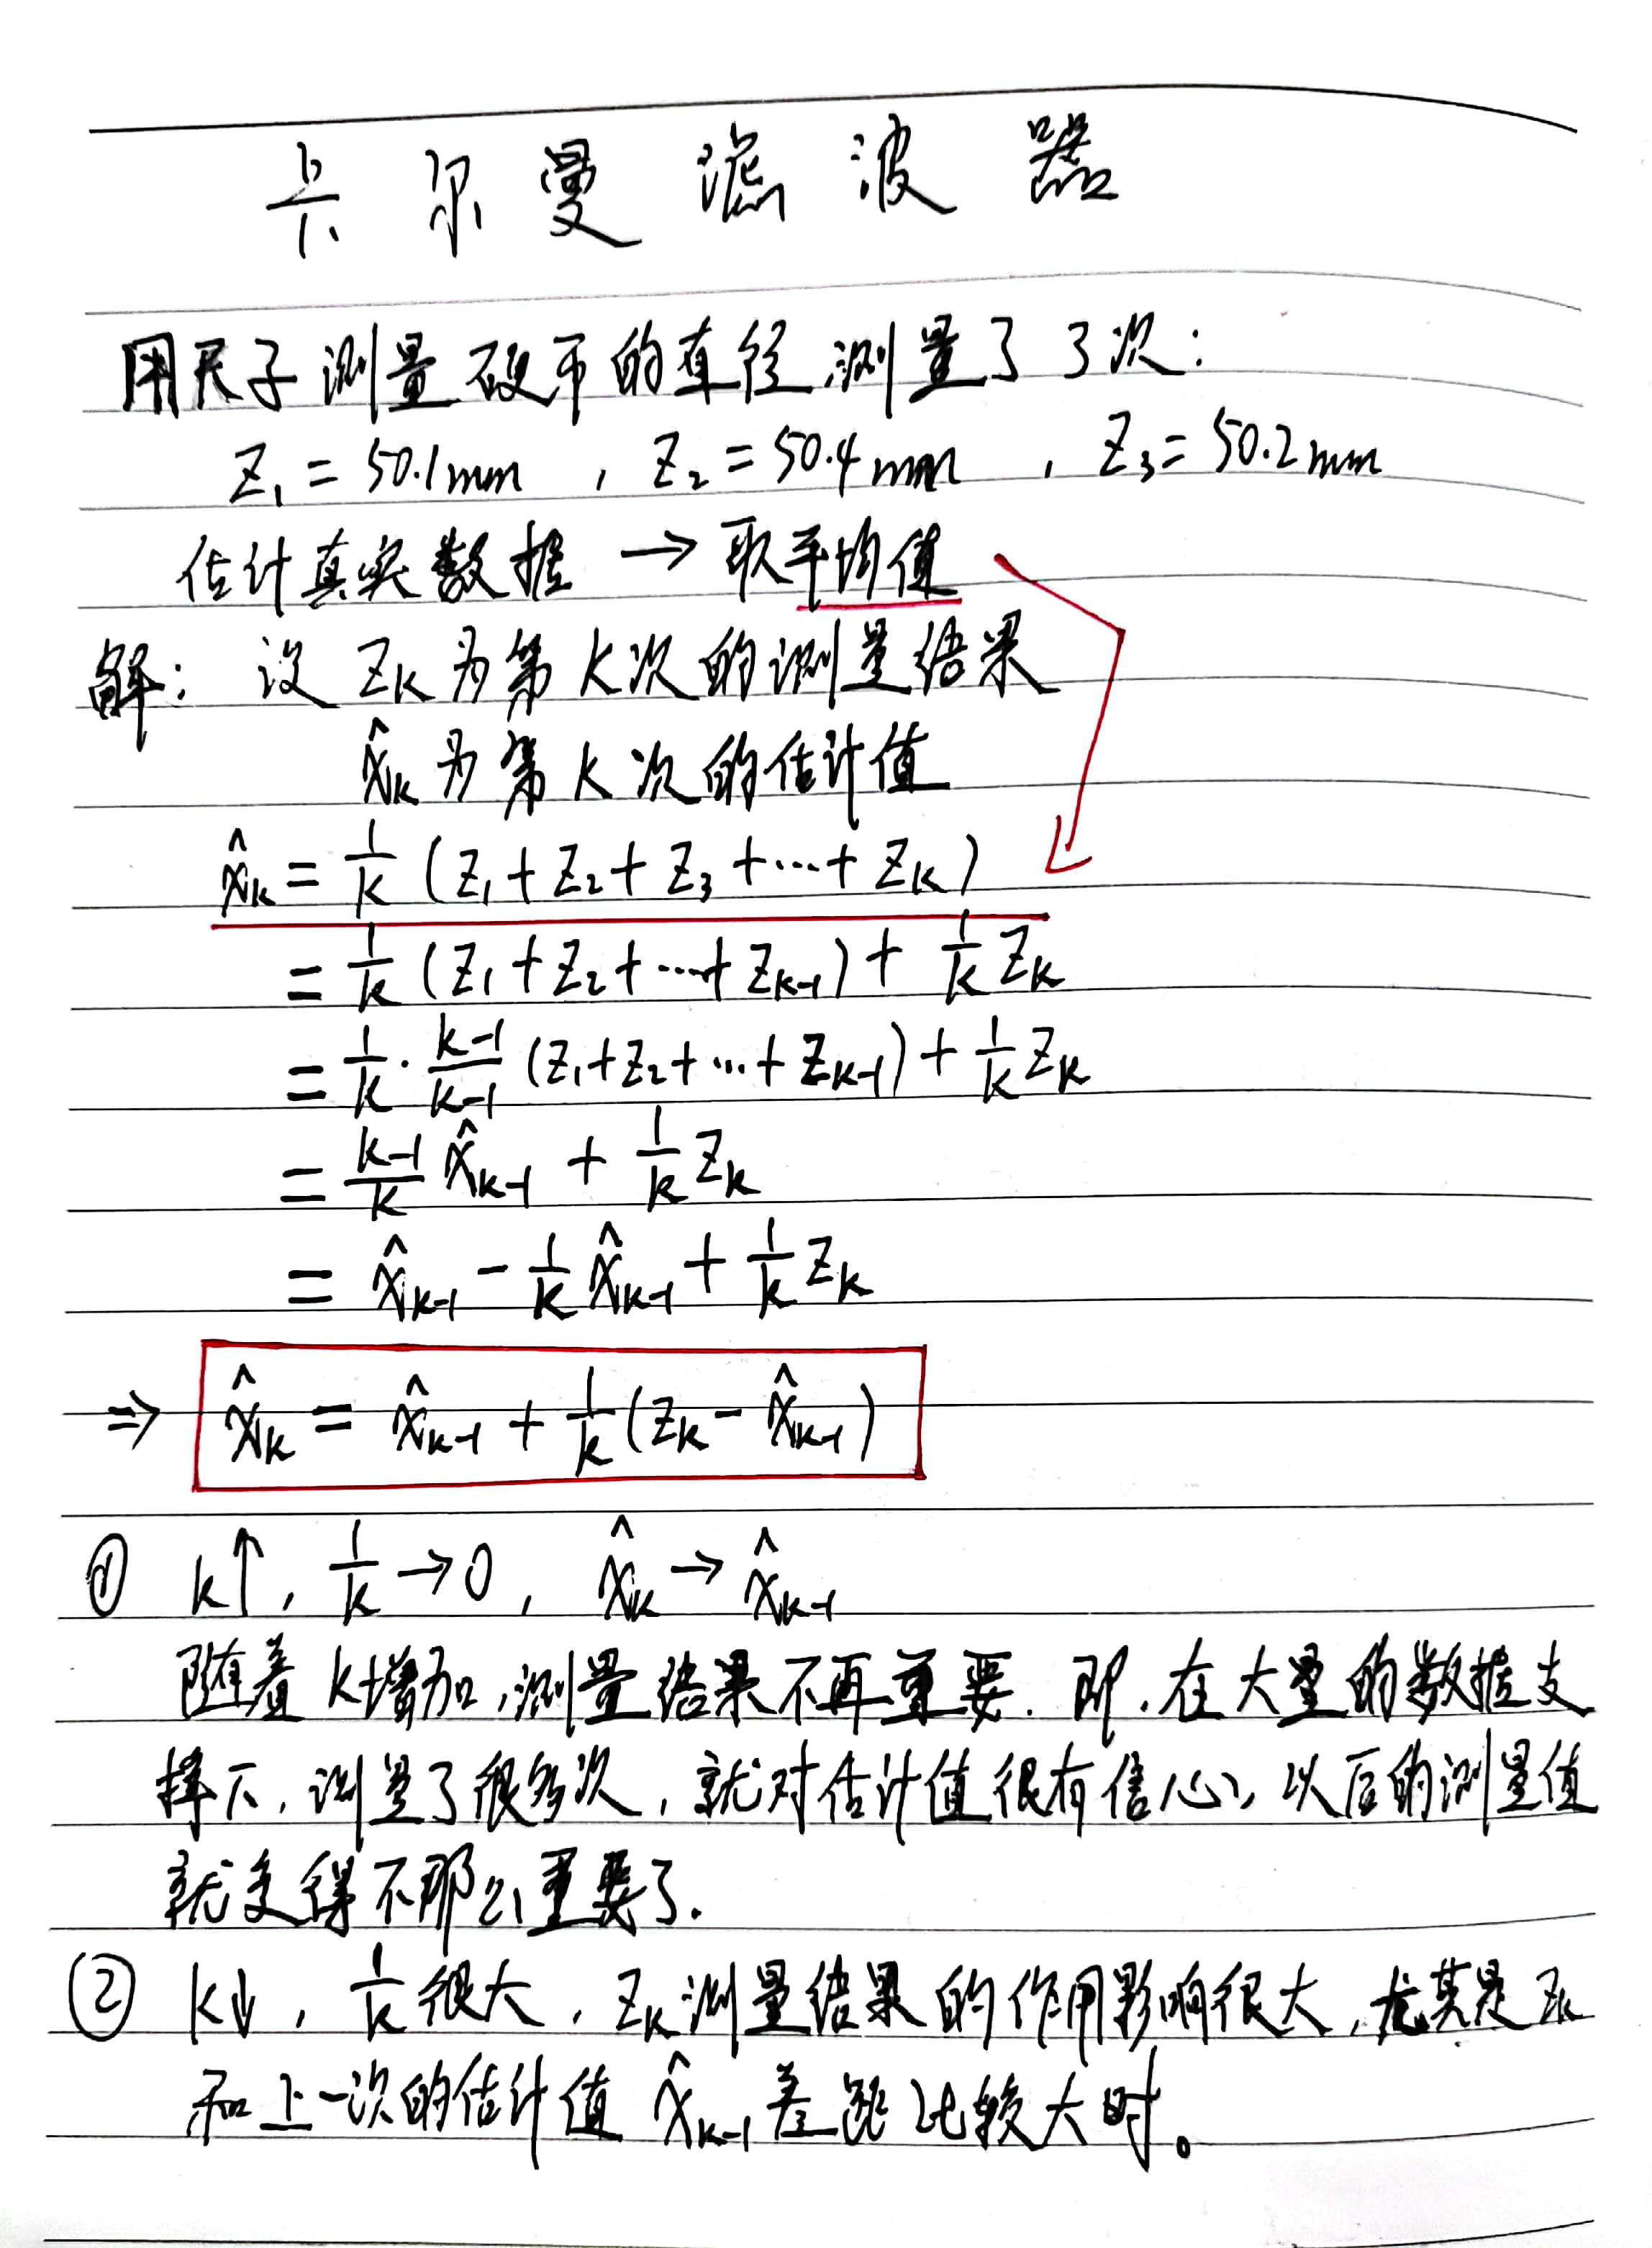 卡尔曼滤波器
用尺子测量硬币的直径,测量了3次:
Z₁ = 50.1mm , Z₂ = 50.4mm , Z₃ = 50.2mm
估计真实数据 → 取平均值
解: 设 Zₖ 为第 k 次的测量结果
x̂ₖ 为第 k 次的估计值
x̂ₖ = 1/k (Z₁ + Z₂ + Z₃ + ··· + Zₖ)
= 1/k (Z₁ + Z₂ + ··· + Zₖ₋₁) + 1/k Zₖ
= 1/k · (k-1)/(k-1) (Z₁ + Z₂ + ··· + Zₖ₋₁) + 1/k Zₖ
= (k-1)/k x̂ₖ₋₁ + 1/k Zₖ
= x̂ₖ₋₁ - 1/k x̂ₖ₋₁ + 1/k Zₖ
⇒ x̂ₖ = x̂ₖ₋₁ + 1/k (Zₖ - x̂ₖ₋₁)
① k↑, 1/k → 0, x̂ₖ → x̂ₖ₋₁
随着 k增加,测量结果不再重要. 即,在大量的数据支
撑下,测量了很多次,就对估计值很有信心,以后的测量值
就变得不那么重要了.
② k↓, 1/k 很大, Zₖ 测量结果的作用影响很大,尤其是 Zₖ
和上一次的估计值 x̂ₖ₋₁ 差距比较大时。